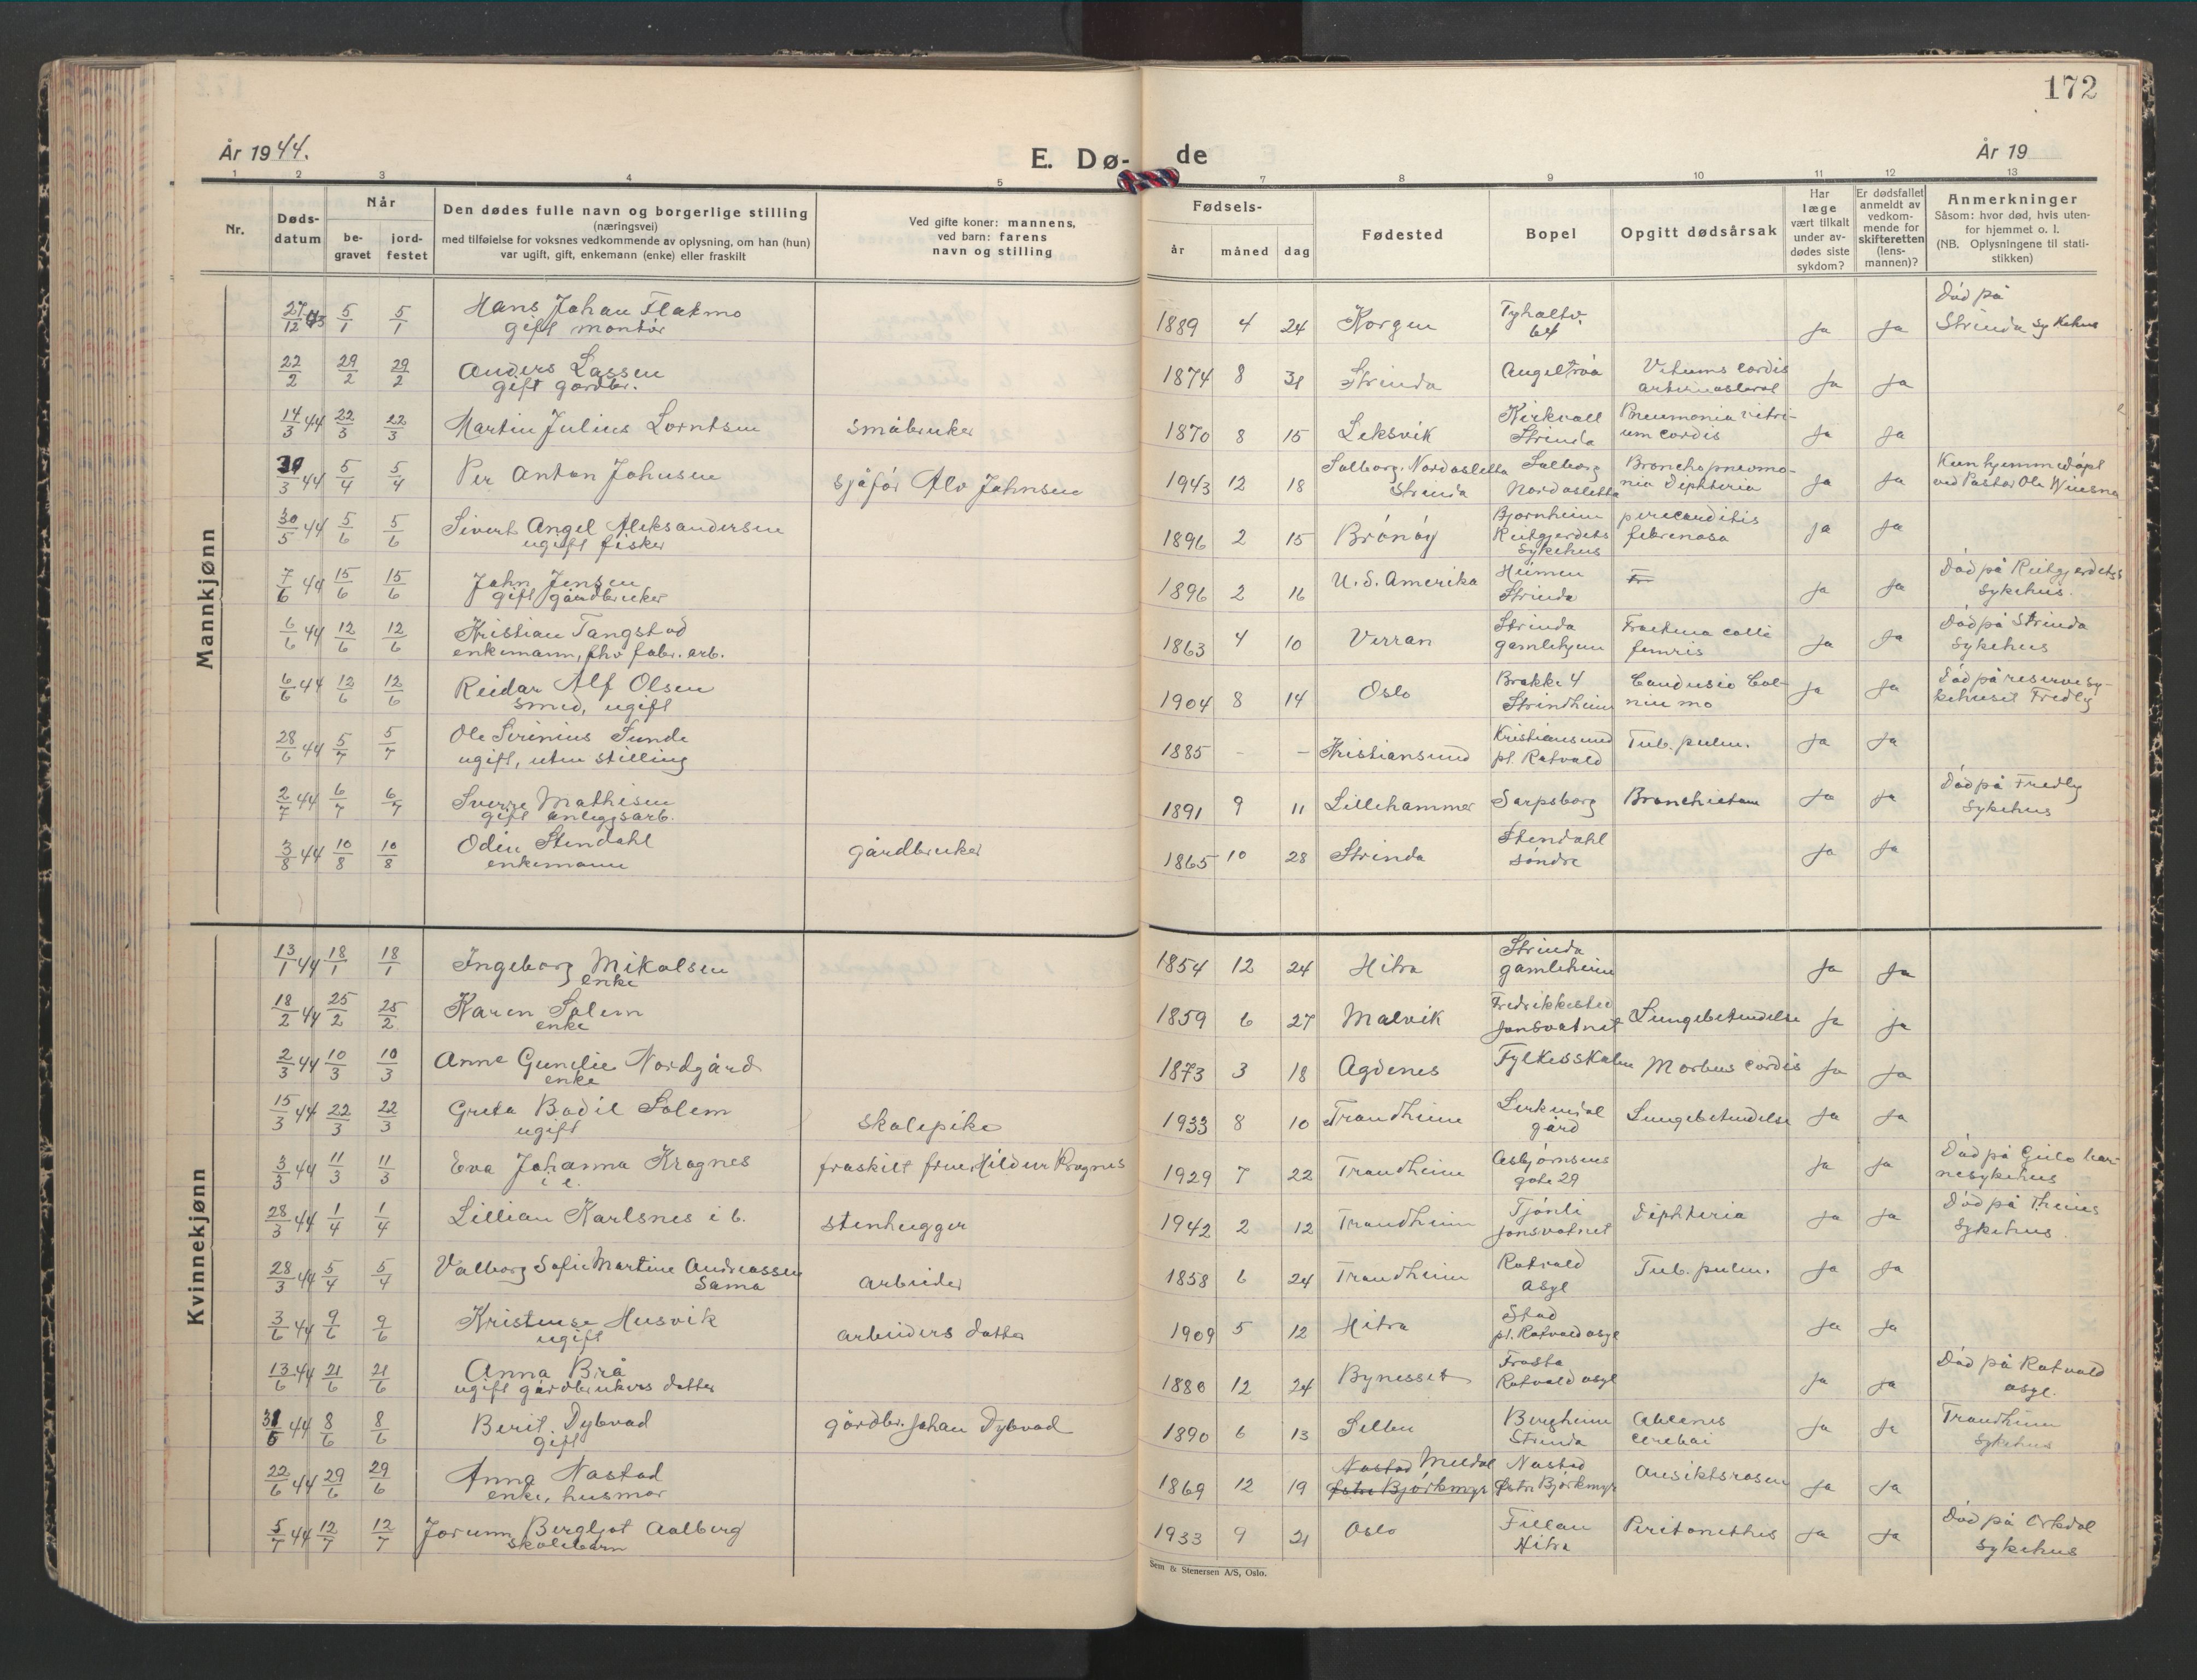 172
År 1944.
E. Dø-de
År 19
1 2 3 4 5 7 8 9 10 11 12 13
Nr.
Døds-
datum
Når
be-
gravet
jord-
festet
Den dødes fulle navn og borgerlige stilling
(næringsvei)
med tilføielse for voksnes vedkommende av oplysning, om han (hun)
var ugift, gift, enkemann (enke) eller fraskilt
Ved gifte koner: mannens,
ved barn: farens
navn og stilling
Fødsels-
år måned dag
Fødested
Bopel
Opgitt dødsårsak
Har
læge
vært tilkalt
under av-
dødes siste
sykdom?
Er dødsfallet
anmeldt av
vedkom-
mende for
skifteretten
(lens-
mannen)?
Anmerkninger
Såsom: hvor død, hvis uten-
for hjemmet o. l.
(NB. Oplysningene til stati-
stikken)
Mannkjønn
27/12 43 5/1 5/1 Hans Johan Flatmo
gift montør
1889 4 24 Korgen Tyholtv. 64 Ja Ja Död på
Strinda sykehus
22/2 29/2 29/2 Anders Lassen
gift gårdbr.
1874 8 31 Strinda Angeltrøa Vitiums cordis
Ja Ja
14/3 44 22/3 22/3 Martin Julius Lorntsen småbruker
1870 8 15 Leksvik Kirkvoll
Strinda Pneumonia vitri-
um cordis Ja Ja
/3 44 5/4 5/4 Per Anton Johnsen sjåfør Alv Johnsen
1943 12 18 Solborg, Nordosletta
Strinda Solborg
Nordosletta Bronchopneomo-
nia Diphteria Ja Ja Kun hjemmedöpt
ved Pastor Ole Winsnes
30/5 44 5/6 5/6 Sivert Angel Aleksandersen
ugift fisker
1896 2 15 Brönöy Bjornheim
Reitgjerdets
sykehus pericarditis
febrinosa Ja Ja
7/6 44 15/6 15/6 John Jensen
gift gårdbruker
1896 2 16 U.S. Amerika Heimen
Strinda Ja Ja Död på Reitgjerdets
sykehus.
6/6 44 12/6 12/6 Kristian Tangstad
enkemann, fhv fabr. arb.
1863 4 10 Verran Strinda
gamlehjem Fractura colli
femris Ja Ja Död på Strinda
sykehus
6/6 44 12/6 12/6 Reidar Alf Olsen
smed, ugift
1904 8 14 Oslo Brakke 4
Strindheim Ja Ja Död på reservesy-
kehuset Fredly
28/6 44 5/7 5/7 Ole Serinius Sunde
ugift, uten stilling
1885 - - Kristiansund Kristiansund
pl. Rotvold Tub. pulm. Ja Ja
2/7 44 6/7 6/7 Sverre Mathisen
gift anleggsarb.
1891 9 11 Lillehammer Sarpsborg Ja Ja Död på Fredly
Sykehus
3/8 44 10/8 10/8 Odin Stendahl
enkemann gårdbruker
1865 10 28 Strinda Stendahl
söndre Ja Ja
Kvinnekjønn
13/1 44 18/1 18/1 Ingeborg Mikalsen
enke
1854 12 24 Hitra Strinda
gamleheim Ja Ja
18/2 44 25/2 25/2 Karen Solem
enke
1859 6 27 Malvik Fredrikkested
Jonsvatnet Lungebetendelse Ja ja
2/3 44 10/3 10/3 Anne Gunelie Nordgård
enke
1873 3 18 Agdenes Fylkesskolen Morbus cordis Ja Ja
15/3 44 22/3 22/3 Greta Bodil Solem
ugift skolepike
1933 8 10 Trondheim Lerkendal
gård Lungebetendelse Ja Ja
3/3 44 11/3 11/3 Eva Johanna Krognes
i e. fraskilt frue Hildur Krognes
1929 7 22 Trondheim Asbjørnsens
gate 29 Ja Ja Död på Geilo bar-
nesykehus
28/3 44 1/4 1/4 Lillian Karlsnes i b. stenhugger
1942 2 12 Trondheim Tjönli
Jonsvatnet Diphteria Ja Ja Död på Trheims
Sykehus.
28/3 44 5/4 5/4 Valborg Sofie Martine Andreassen
Sama arbeider
1858 6 24 Trondheim Rotvold
asyl Tub. pulm. Ja Ja
3/6 44 9/6 9/6 Kristense Husvik
ugift arbeiders datter
1909 5 12 Hitra Stad
pl. Rotvold asyl Ja Ja
13/6 44 21/6 21/6 Anna Brå
ugift gårdbrukers datter
1880 12 24 Bynesset Frosta
Rotvold asyl Ja Ja Död på Rotvold
asyl.
31/5 44 8/6 8/6 Berit Dybvad
gift gårdbr. Johan Dybvad
1890 6 13 Selbu Bergheim
Strinda Ja Ja Trondheim
Sykehus
22/6 44 29/6 29/6 Anna Nastad
enke, husmor
1869 12 19 Nastad Meldal
Østre Björkmyr Nastad
Østre Björkmyr Ansiktsrosen Ja Ja
5/7 44 12/7 12/7 Jorunn Bergljot Aalberg
skolebarn
1933 9 21 Oslo Fillan
Hitra Ja Ja Död på Orkdal
Sykehus
Sem & Stenersen A/S, Oslo.